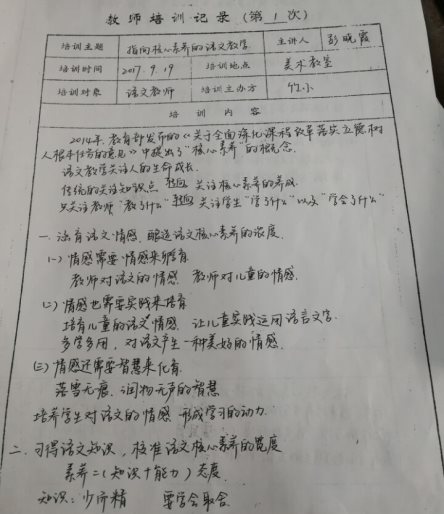 教师培训记录（第 1 次）
培训主题 指向核心素养的语文教学 主讲人 彭晓霞
培训时间 2017.9.19 培训地点 美术教室
培训对象 语文教师 培训主办方 竹小
培训内容
2014年教育部发布的《关于全面深化课程改革落实立德树
人根本任务的意见》中提出了"核心素养"的概念.
语文教学关注人的生命成长.
传统的关注知识点 转向 关注核心素养的养成.
只关注教师"教了什么" 转向 关注学生"学了什么"以及"学会了什么"
一. 涵育语文情感, 酿造语文核心素养的浓度.
(一) 情感需要情感来孵育
教师对语文的情感. 教师对儿童的情感.
(二) 情感也需要实践来培育
培育儿童的语文情感 让儿童实践运用语言文字.
多学多用, 对语文产生一种美好的情感.
(三) 情感还需要智慧来化育.
落雪无痕、润物无声的智慧
培养学生对语文的情感 形成学习的动力.
二. 习得语文知识, 校准语文核心素养的宽度
素养=(知识+能力)态度.
知识: 少而精 要学会取舍.